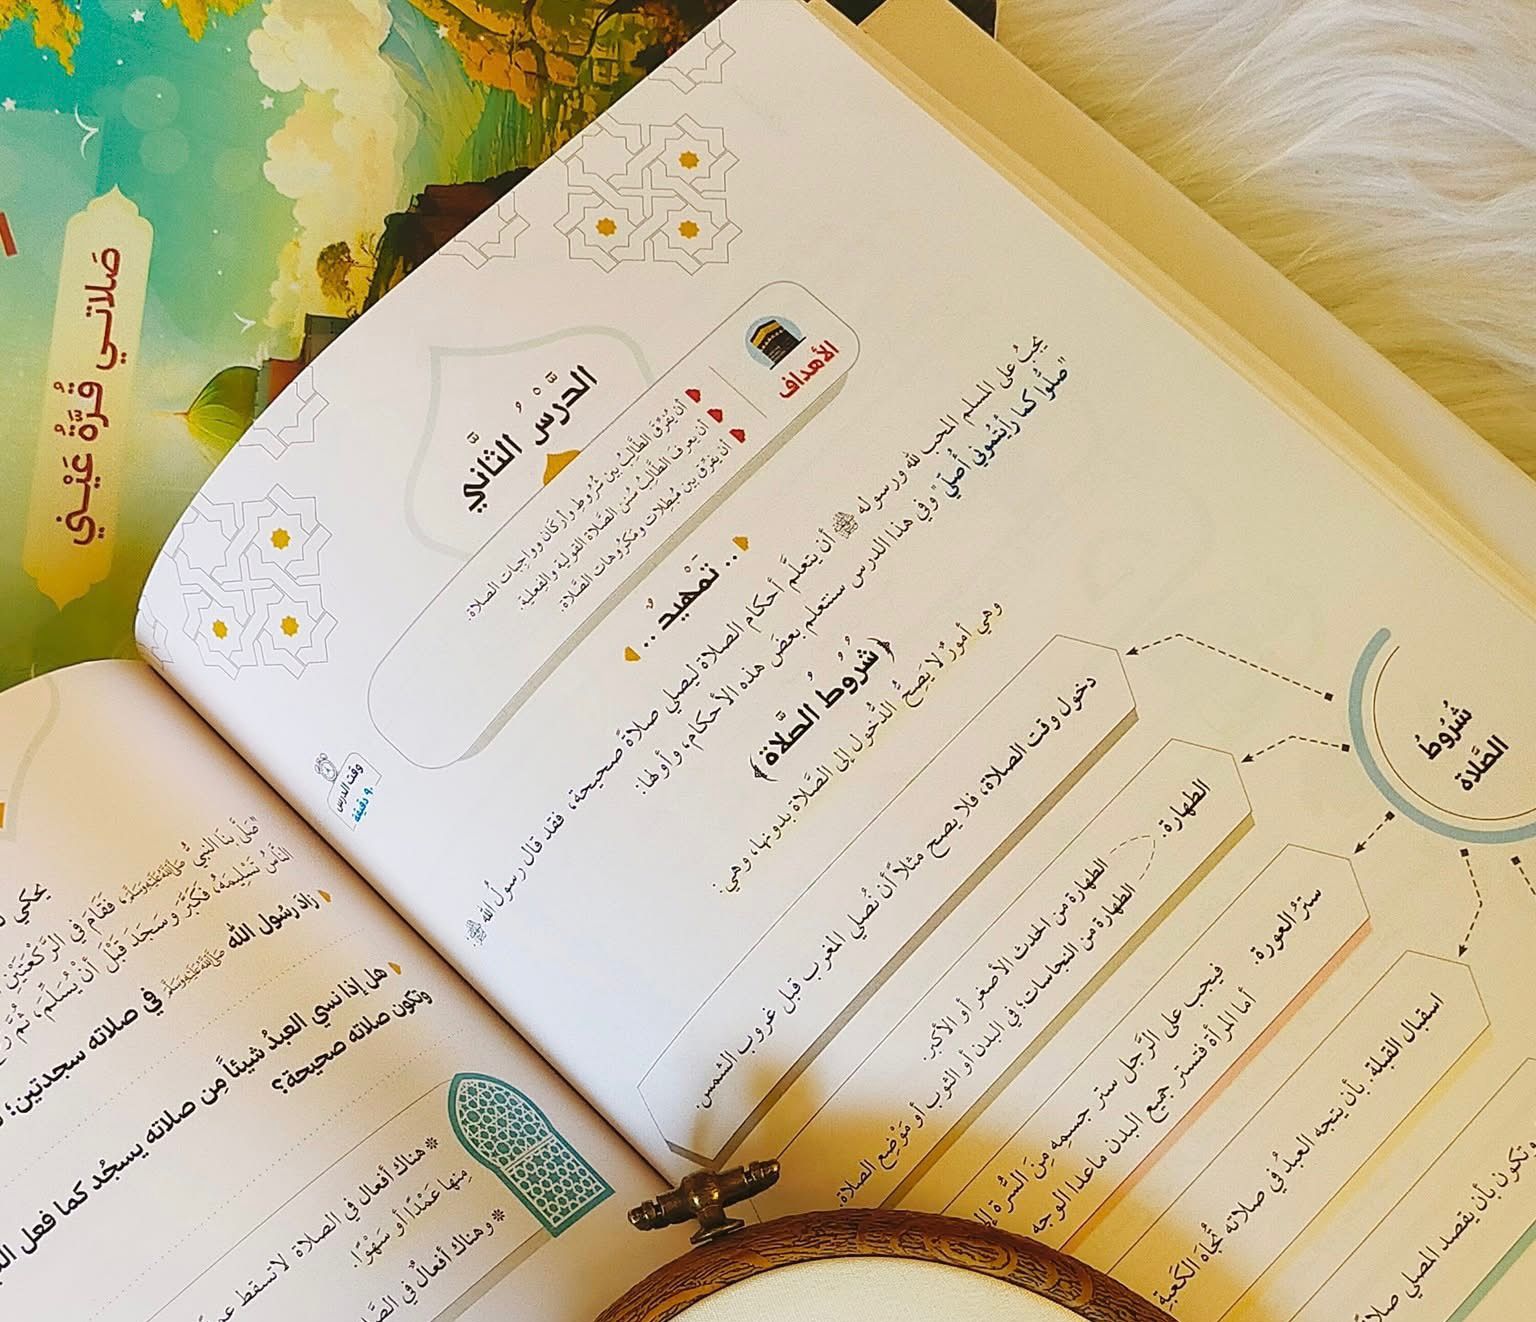 صَلاتي قُرَّةُ عَيْني
الدَّرْسُ الثَّاني
الأهداف
أن يُفرِّقَ الطَّالبُ بين شُروطِ وأركَان وواجبات الصلاة.
أن يعرفَ الطَّالبُ سُنن الصَّلاة القولية والفِعلية.
أن يفرِّق بين مُبطلات ومَكرُوهات الصَّلاة.
وقت الدرس
٩٠ دقيقة
.. تمْهيدٌ ..
يجبُ على المسلم المحب لله ورسوله ﷺ أن يتعلَّم أحكام الصلاة ليصلي صلاةً صحيحة، فقد قال رسولُ الله ﷺ:
"صلُّوا كما رأيتُموني أُصلّي" وفي هذا الدرس سنتعلم بعضَ هذه الأحكام، وأولها:
﴿شُرُوطُ الصَّلاة﴾
وهي أمورٌ لا يَصِحُّ الدُّخول إلى الصَّلاة بدونها، وهي:
شُرُوطُ
الصَّلاة
دخول وقت الصلاة، فلا يصح مثلاً أن نُصلي المغرب قبل غروب الشمس.
الطهارة.
الطهارة من الحدث الأصغر أو الأكبر.
الطهارة من النجاسات، في البدن أو الثوب أو مَوْضِع الصلاة.
سترُ العورة.
فيجب على الرَّجل ستر جسمِه مِنَ السُّرة
أما المرأة فتستر جميع البدن ماعدا الوجه
استقبال القبلة. بأن يتجه العبدُ في صلاته تُجاهَ الكَعبةِ
وتكون بأن يقصد المصلي
يحكي
"صَلَّى بنَا النبيُّ ﷺ، فَقَامَ في الرَّكْعَتَيْنِ
النَّاسُ تَسْلِيمَهُ، فَكَبَّرَ وسَجَدَ قَبْلَ أنْ يُسَلِّمَ، ثُمَّ
زادَ رسُول الله ﷺ في صلاته سجدتين؛
هل إذا نسي العبدُ شيئاً مِن صلاته يسجُد كما فعل
وتكون صلاته صحيحة؟
* هناك أفعال في الصلاة لا تسقط
مِنها عَمْدًا أو سَهْوًا.
* وهناك أفعالٌ في